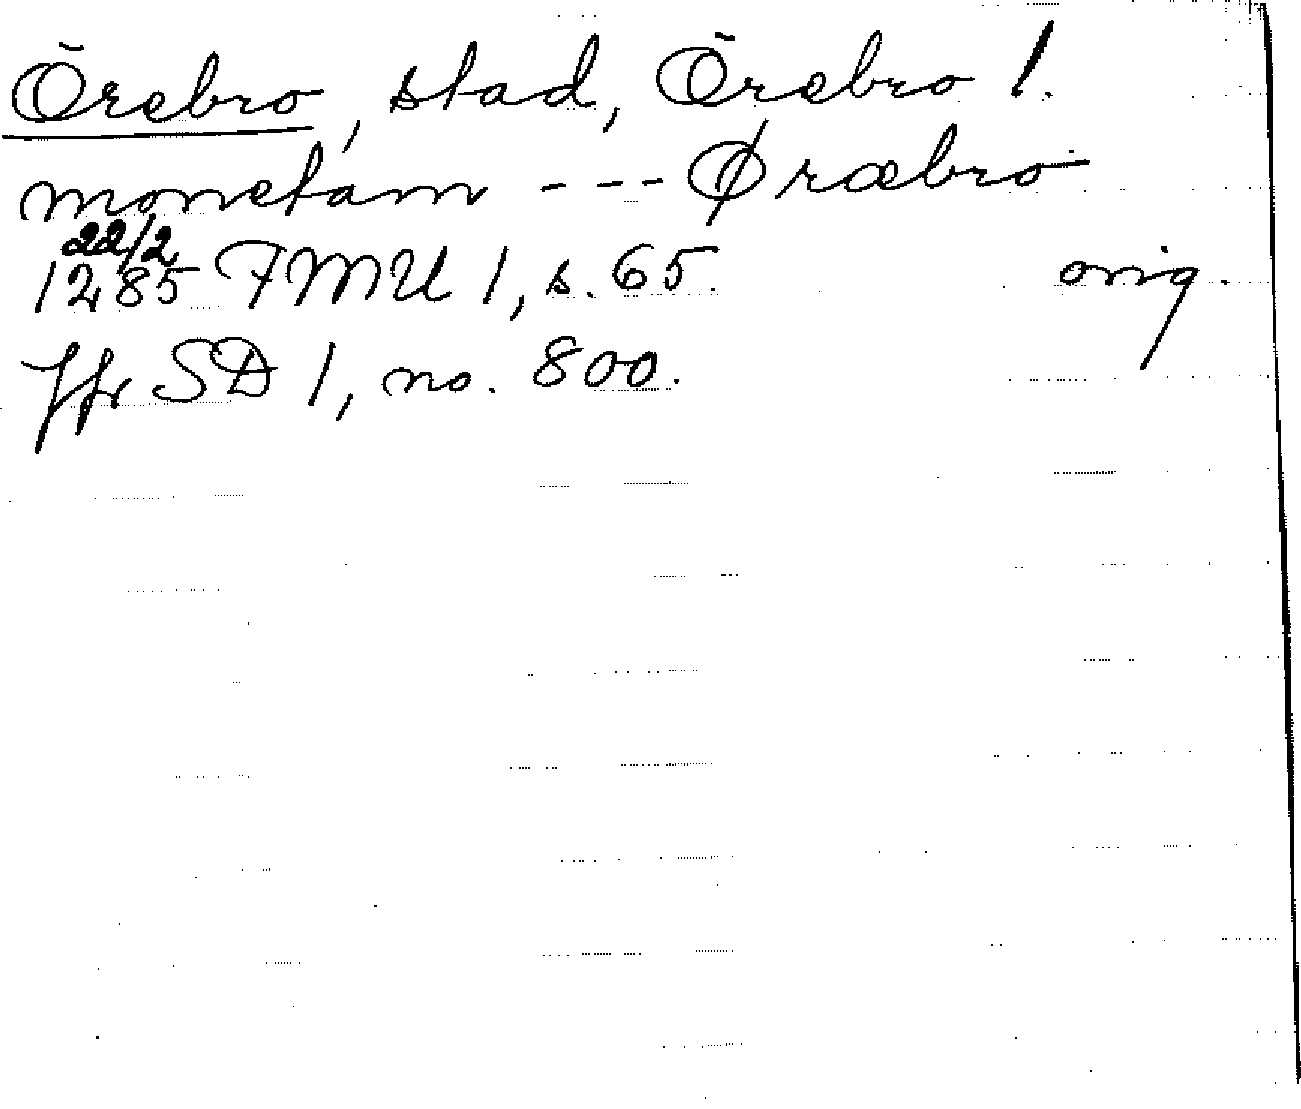 Örebro, stad, Örebro l.
monetam - - - Øræbro
22/2
1285 FMU 1, s. 65. orig.
Jfr SD 1, no. 800.